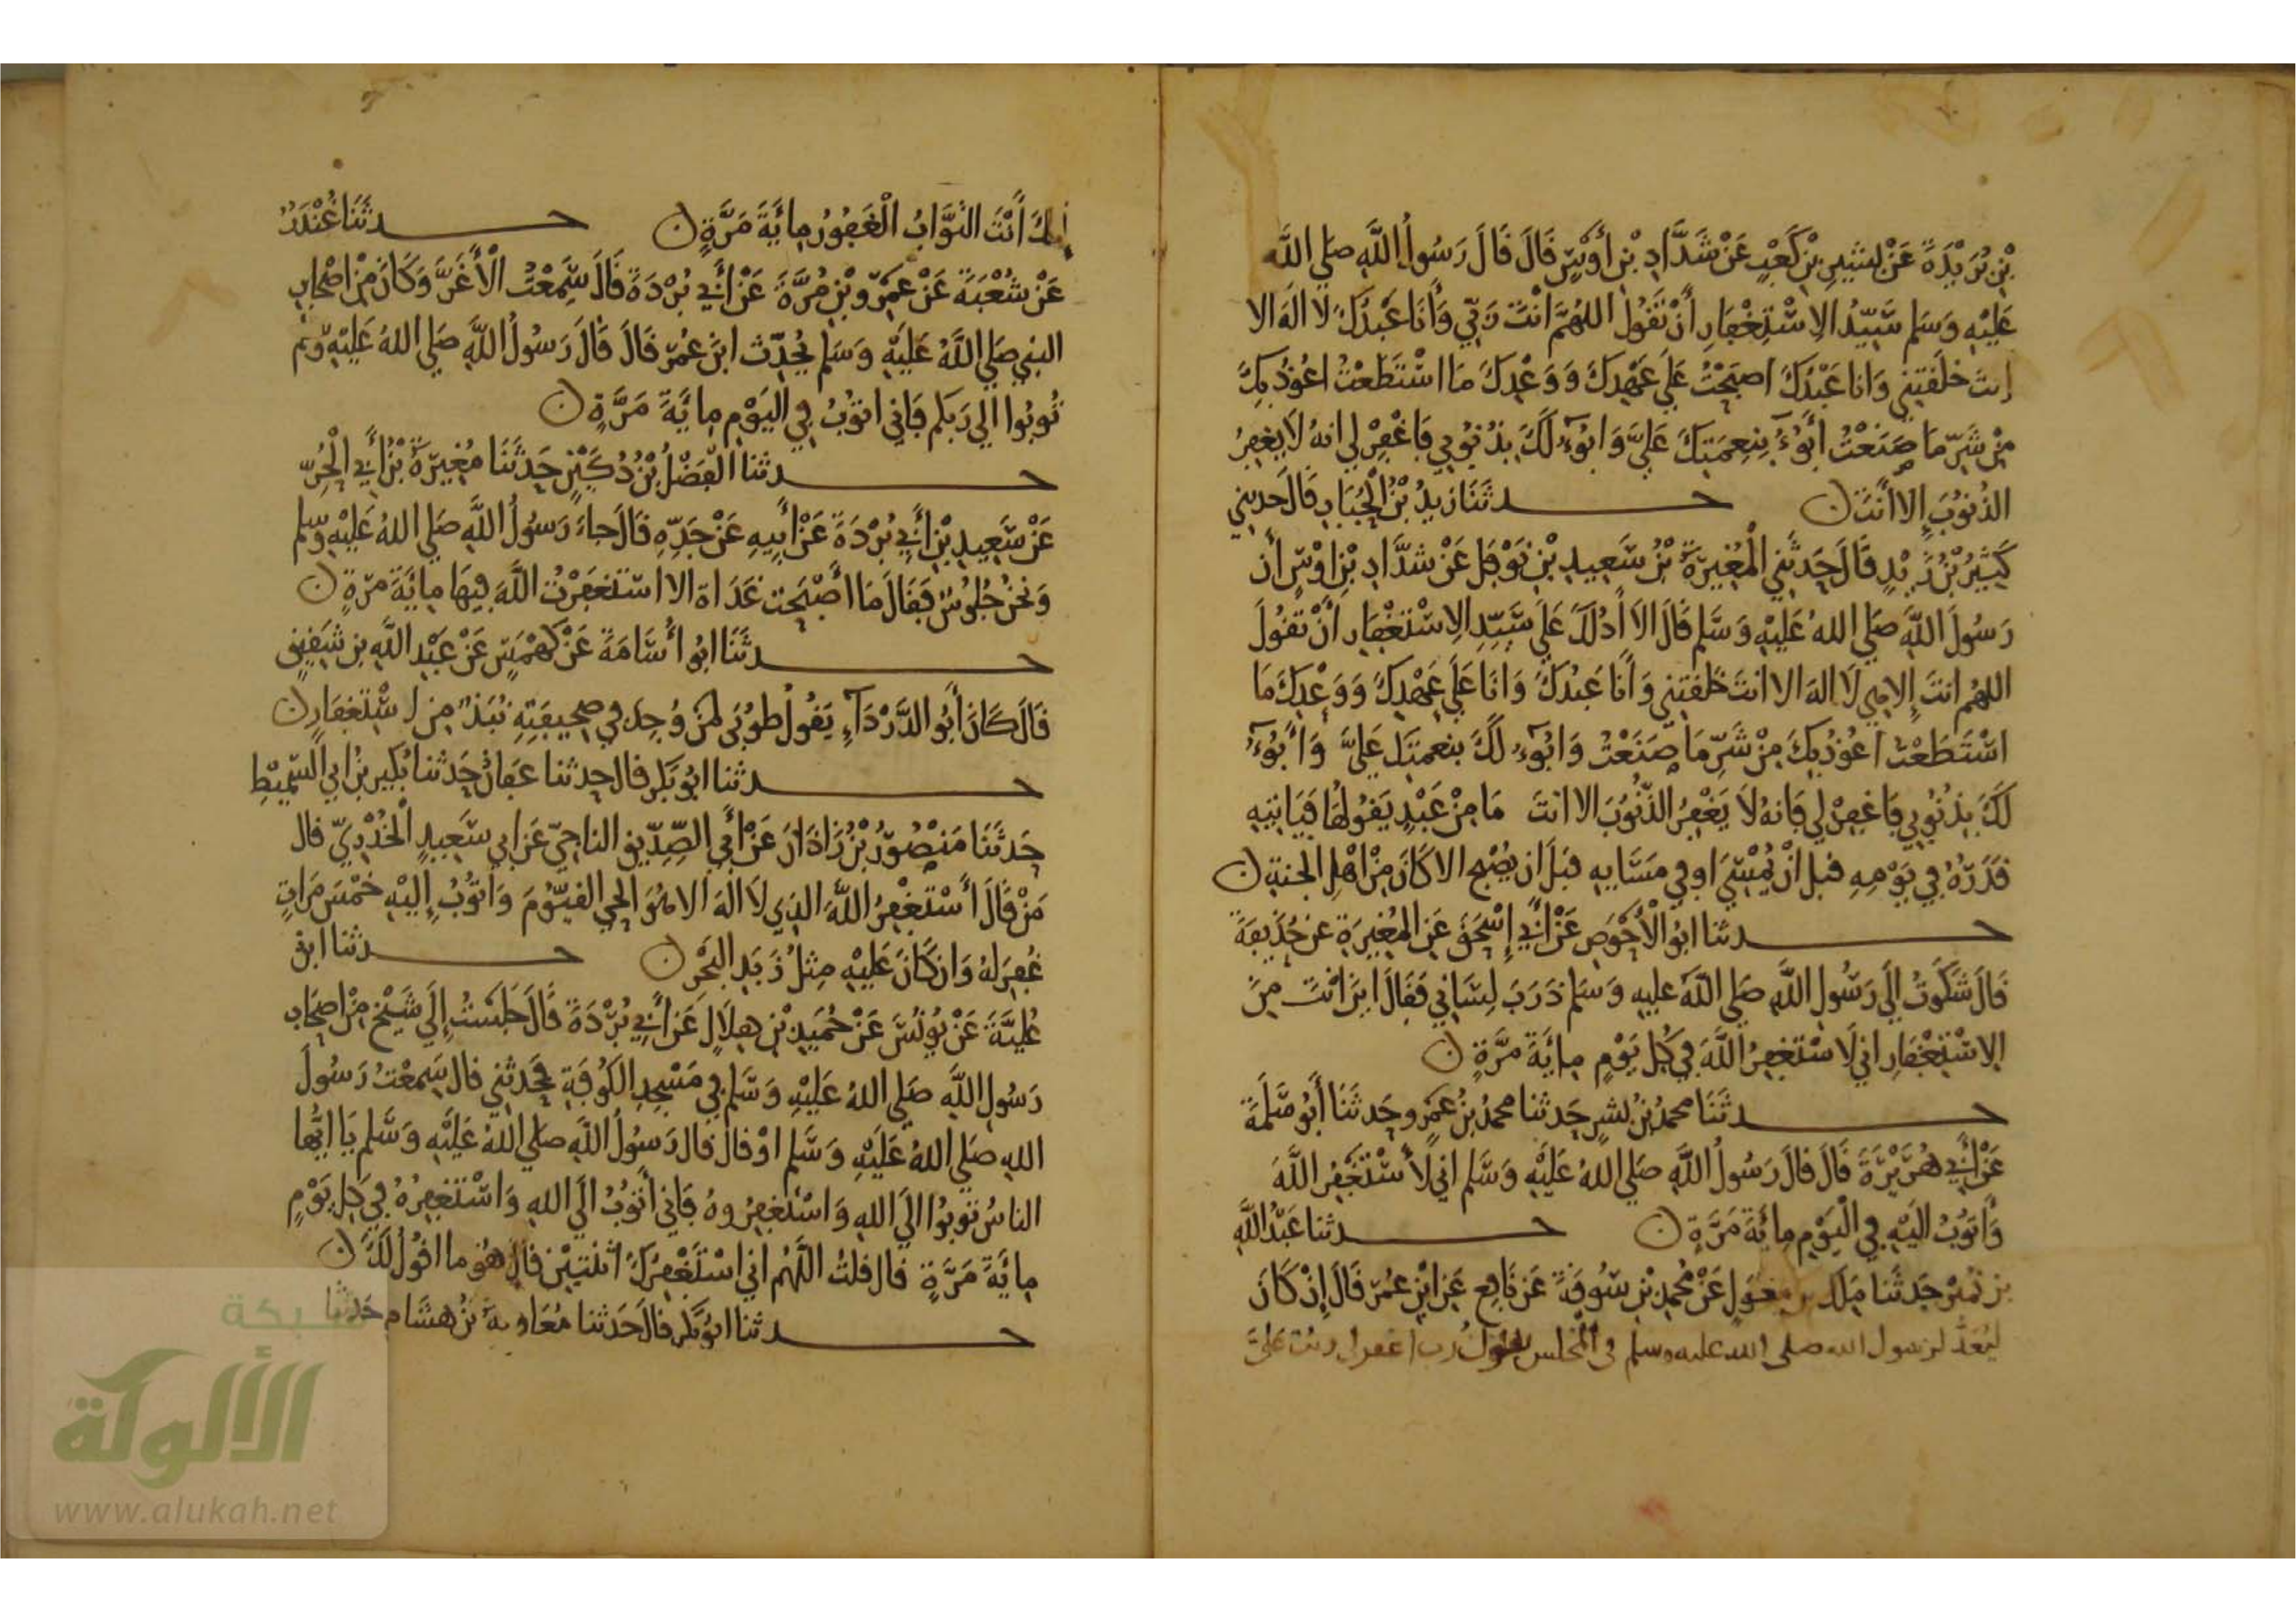 بْنِ بُرَيْدَةَ عَنْ بُشَيْرِ بْنِ كَعْبٍ عَنْ شَدَّادِ بْنِ أَوْسٍ قَالَ قَالَ رَسُولُ اللَّهِ صَلَى اللَّه
عَلَيْهِ وَسَلم سَيِّدُ الِاسْتِغْفَارِ أَنْ تَقُولَ اللهُمَّ أَنْتَ رَبِّي وَأَنَا عَبْدُكَ لَا الَهَ الا
انتَ خلَقتِني وَانا عَبْدُكَ اصبَحْتُ عَلَى عَهْدِكَ وَوَعْدِكَ مَا اسْتَطَعْتُ اعُوذُ بِكَ
مِنْ شَرِّ مَا صَنَعْتُ أبُوْءُ بِنِعمَتِكَ عَلَيَّ وَابُوْءُ لَكَ بِذُنُوبي فَاغْفِرْ لي انهُ لَا يغفِرُ
الذُنوُبَ إِلا أَنَتَ ن حدثَنَا زيدُ بْنُ الْحُبَابِ قَالَ حدثني
كَثِيْرُ بْنُ زَيْدٍ قَالَ حَدثَنِي الْمُغِيرَةُ بْنُ سَعِيدِ بْنِ نَوْفَلٍ عَنْ شَدَّادِ بْنِ اوْسٍ أَن
رَسُولَ اللَّهِ صَلَى اللهُ عَليْهِ وَسَّلم قَالَ الاَ أَدُلُكَ عَلَى سَيِّدِ الِاسْتْغفَارِ أَنْ تقُولَ
اللهُم انتَ إِلاهِي لَا الهَ الا انتَ خَلَقتِني وَأَنَا عَبدُكَ وَانَا عَلَى عَهْدِكَ وَوَعْدِكَ مَا
اسْتَطَعْتُ اعُوْذُ بِكَ مِنْ شَرِّ مَا صَنَعْتُ وَابُوْءُ لَكَ بنعمتِكَ عَليَّ وَأَبُوْءُ
لَكَ بِذُنُوبي فاغفِرْ لي فَانهُ لاَ يَغْفِرُ الذُّنُوبَ الا انتَ مَا مِنْ عَبْدٍ يَقُولُهَا فَيَاتيهِ
قدَرُهُ في يَوْمِهِ قبل انْ يُمْسِيَ اوفي مَسَايِهِ قبَلَ ان يُصْبِح الا كَانَ مِنْ اهْلِ الجنةِ ن
حدثنا ابوُ الْأَحْوَصِ عَنْ أَبي إِسْحَقَ عَنِ المُغِيرَةِ عن حُذَيفَةَ
قَالَ شَكَوْتُ إِلَى رَسُولِ اللَّهِ صَلى اللَّهُ عليهِ وَسَلم ذَرَبَ لِسَاني فَقَالَ اينَ انْتَ مِنَ
الِاسْتِغْفَارِ اني لَاسْتَغفِرُ اللَّهَ في كُل يَوْمٍ مِايَةَ مَرَّةٍ ن
حدثَنَا محمدُ بْنُ بشرٍ حَدثنا محمدُ بنُ عَمْرٍو حَدثَنَا أَبُو سَلَمَةَ
عَنْ أَبي هُرَيْرَةَ قَالَ قالَ رَسُولُ اللَّهِ صَلي اللهُ عَلَيْهِ وَسَّلم اني لَأَسْتَغفِرُ اللَّهَ
وَأَتوُبُ الَيْهِ في الْيَوْمِ مِايَةَ مَرَّةٍ ن حدثنا عَبْدُ اللَّهِ
بن نُمَيْرٍ حَدثَنا مَالك بن مِغوَلٍ عَنْ مُحمدِ بْنِ سُوقَةَ عَن نَافِعٍ عَنِ ابْنِ عُمَرَ قَالَ إِنْ كَانَ
ليُعَدُّ لرسول الله صلى الله عليه وسلم في المجلس يقول رب اغفر لي وتب عَليَّ
إِنكَ أَنْتَ التوَّابُ الْغَفُورُ مِائَةَ مَرَّةٍ ن حدثَنَا غُنْدَرٌ
عَنْ شُعْبَةَ عَنْ عَمْرِو بْنِ مُرَّةَ عَنْ أَبي بُرْدَةَ قَالَ سَمِعْتُ الْأَغَرَّ وَكَانَ مِنْ اصْحَابِ
النبي صَلي اللَّهُ عَلَيْهِ وَسَلم يُحَدِّثُ ابنَ عُمَرَ قَالَ قَالَ رَسُولُ اللَّهِ صَلي اللهُ عَلَيْهِ وسلم
تُوبُوا الي رَبكم فَاني اتوُبُ في اليَوْمِ مِايَةَ مَرَّةٍ ن
حدثنا الْفَضْلُ بْنُ دُكَيْنٍ حَدثَنَا مُغِيرَةُ بْنُ أَبي الْحُرِّ
عَنْ سَعِيدِ بْنِ أَبي بُرْدَةَ عَنْ أَبِيهِ عَنْ جَدِّهِ قالَ جاءَ رَسُولُ اللَّهِ صَلي اللهُ عَلَيْهِ وسلم
وَنحْنُ جُلوُسٌ فَقَالَ مَا أَصْبَحتُ غَدَاة الا استَغفَرْتُ اللَّهَ فِيهَا مِايَةَ مَرّةٍ ن
حدثَنَا ابوُ أُسَامَةَ عَنْ كَهْمَسٍ عَنْ عَبْدِ اللَّهِ بنِ شَقِيقٍ
قَالَ كَانَ أَبُو الدَّرْدَآءِ يَقُولُ طوبَى لمنْ وُجِدَ في صَحِيفَتِهِ نُبَذٌ مِن اسْتِغفَارٍ ن
حدثنا ابُو بَكر قال حدثنا عَفانُ حَدثنا بُكير بْنُ ابي السّميْطِ
حَدثَنَا مَنْصُوْرُ بْنُ زَاذَانَ عَنْ أَبي الصِّدِّيق الناجيّ عَن ابي سَعيدٍ الْخُدْرِيّ قال
مَنْ قَالَ أَسْتَغْفِرُ اللَّهَ الذِي لَا الَه الا هُوَ الحي القيوُّمَ وَأَتوُبُ إِلَيْهِ خَمْسَ مَراتٍ
غُفِرَ لهُ وَان كَانَ عَليْهِ مِثلُ زَبَدِ البَحْرِ ن حدثنا ابن
عُليَّةَ عَنْ يُونُسَ عَنْ حُمَيْدِ بْنِ هِلَالٍ عَن أَبي بُرْدَةَ قَالَ جَلَسْتُ إِلَى شَيْخٍ مِنْ اصْحَابِ
رَسُولِ اللَّهِ صَلي اللهُ عَلَيْهِ وَسَّلم في مَسْجِدِ الكوُفَةِ فحَدثني قال سَمِعْتُ رَسُولَ
اللهِ صَلي اللهُ عَلَيْهِ وَسَّلم اوْ قالَ قال رَسُولُ اللَّهِ صَلي اللهُ عَلَيْهِ وَسَّلم يَا ايُّها
الناسُ توبُوا الَى اللهِ وَاسْتغفِرُوهُ فَاني أَتوُبُ الَي اللهِ وَاسْتَغفِرُهُ في كل يَوْمٍ
مِايَةَ مَرَّةٍ قال قلتُ اللَّهُم اني اسْتَغْفِرُكَ اثنَتيْنِ قال هُوَ ما اقوُلُ لَكَ ن
حدثنا ابوُ بَكر قالَ حَدثنا مُعَاويةُ بْنُ هشَام حَدثنا
شبكة
الألوكة
www.alukah.net